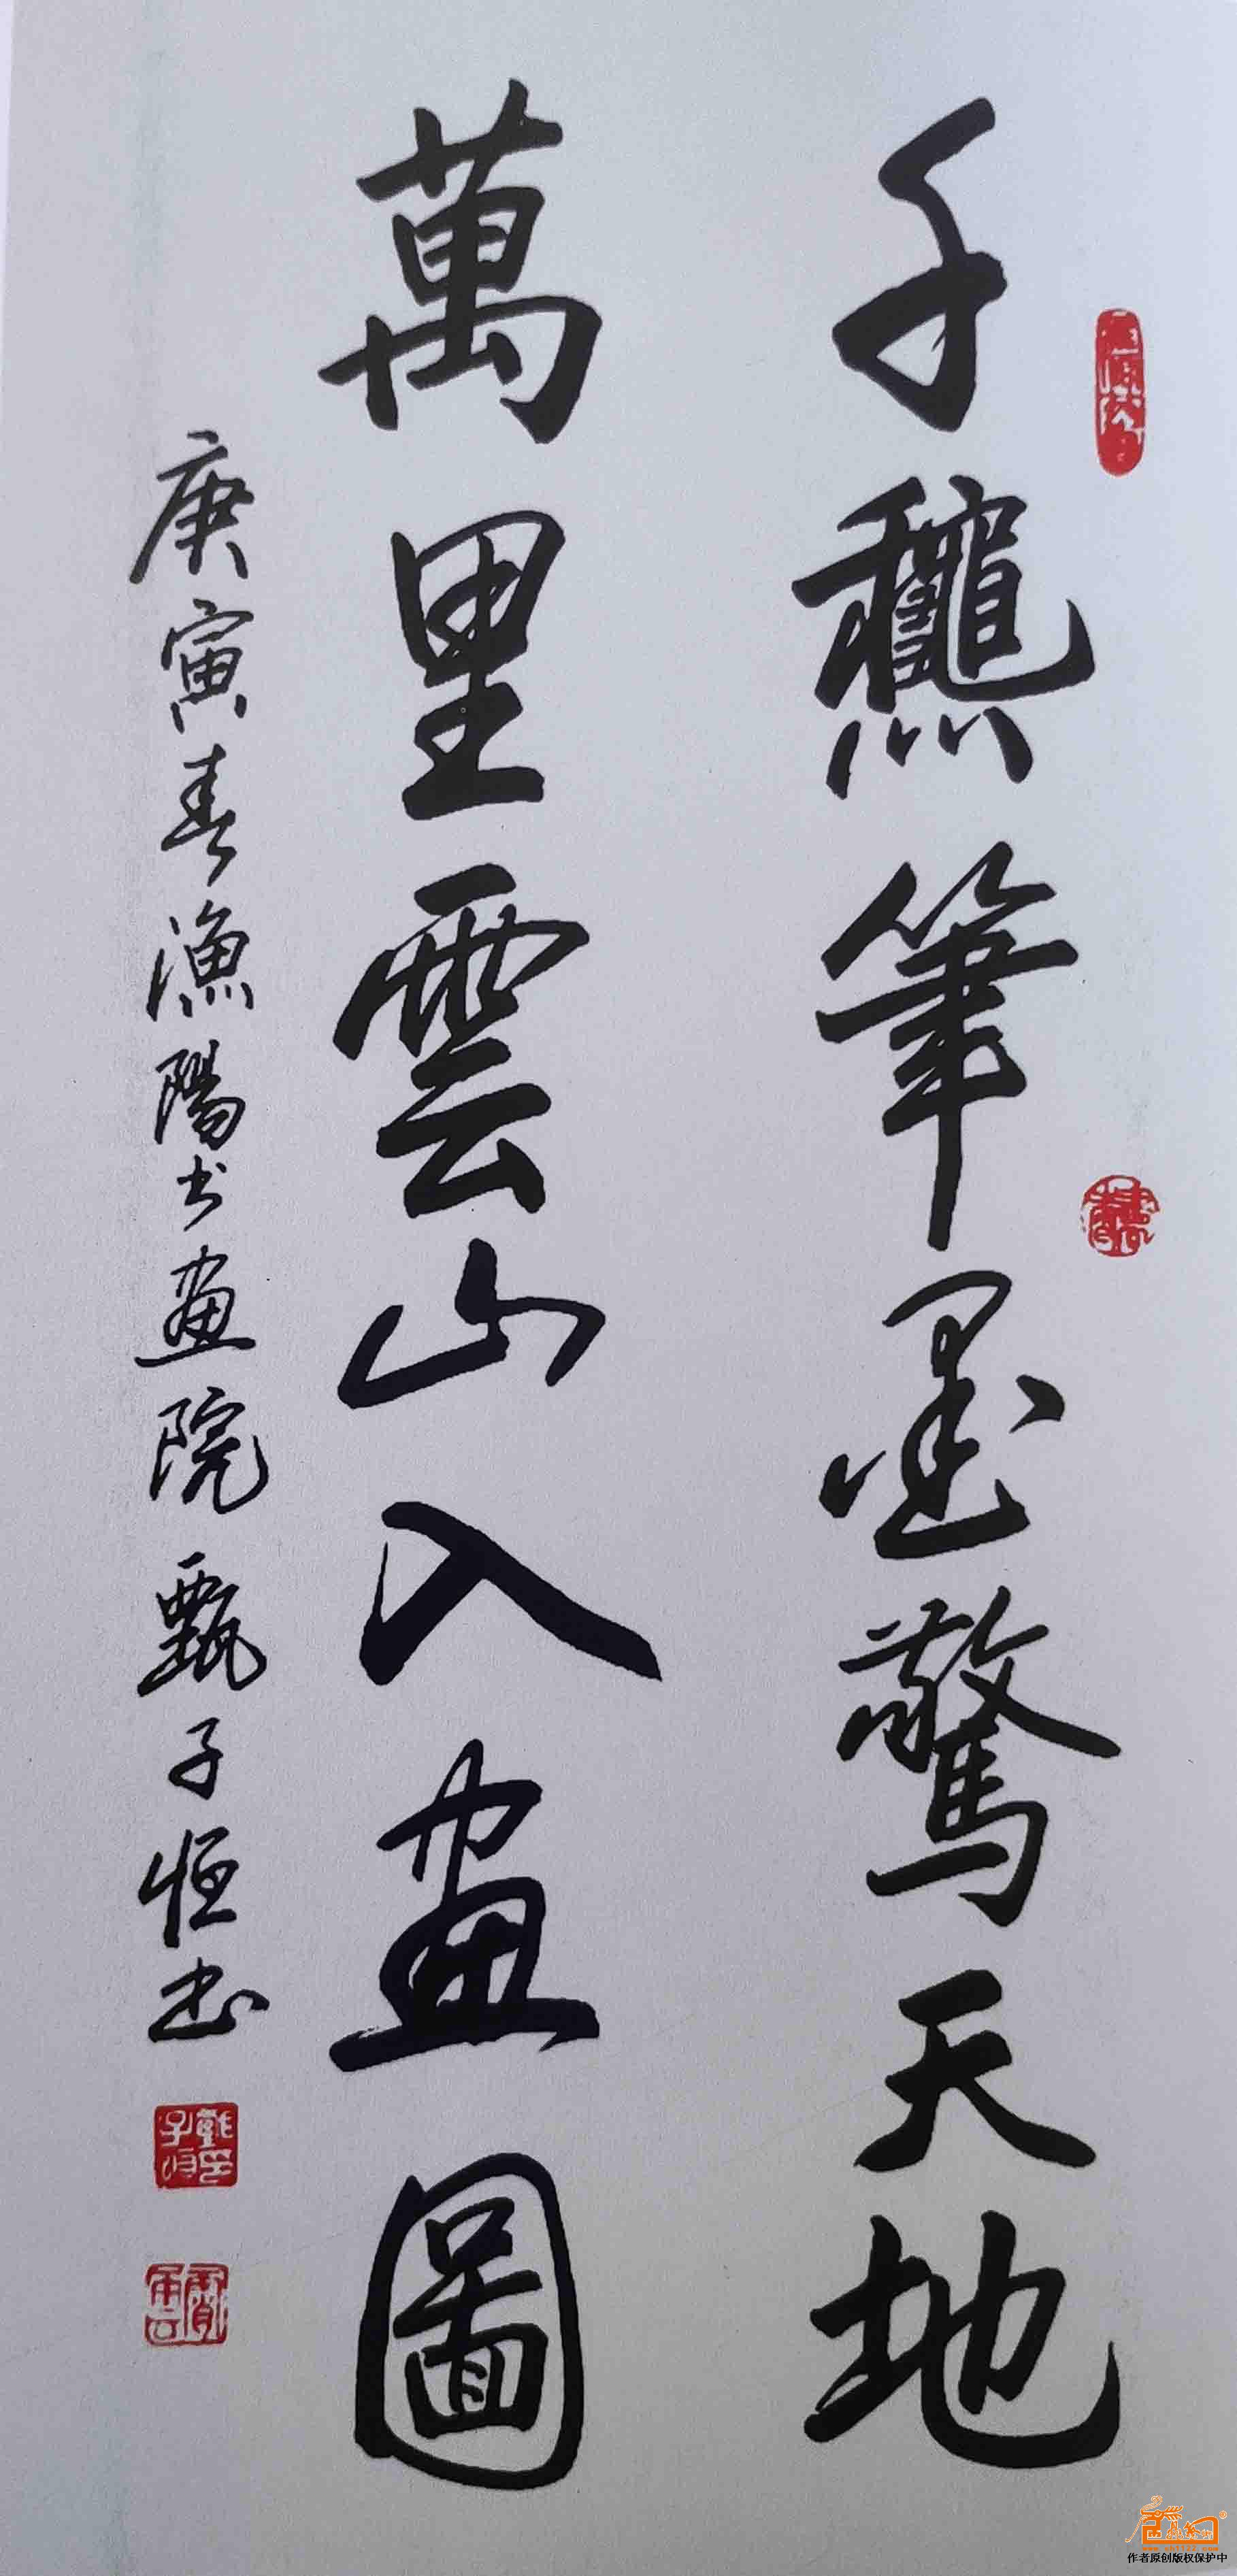 千龝筆墨驚天地
萬里雲山入畫圖
庚寅春漁陽书畫院甄子恒书
作者原创版权保护中